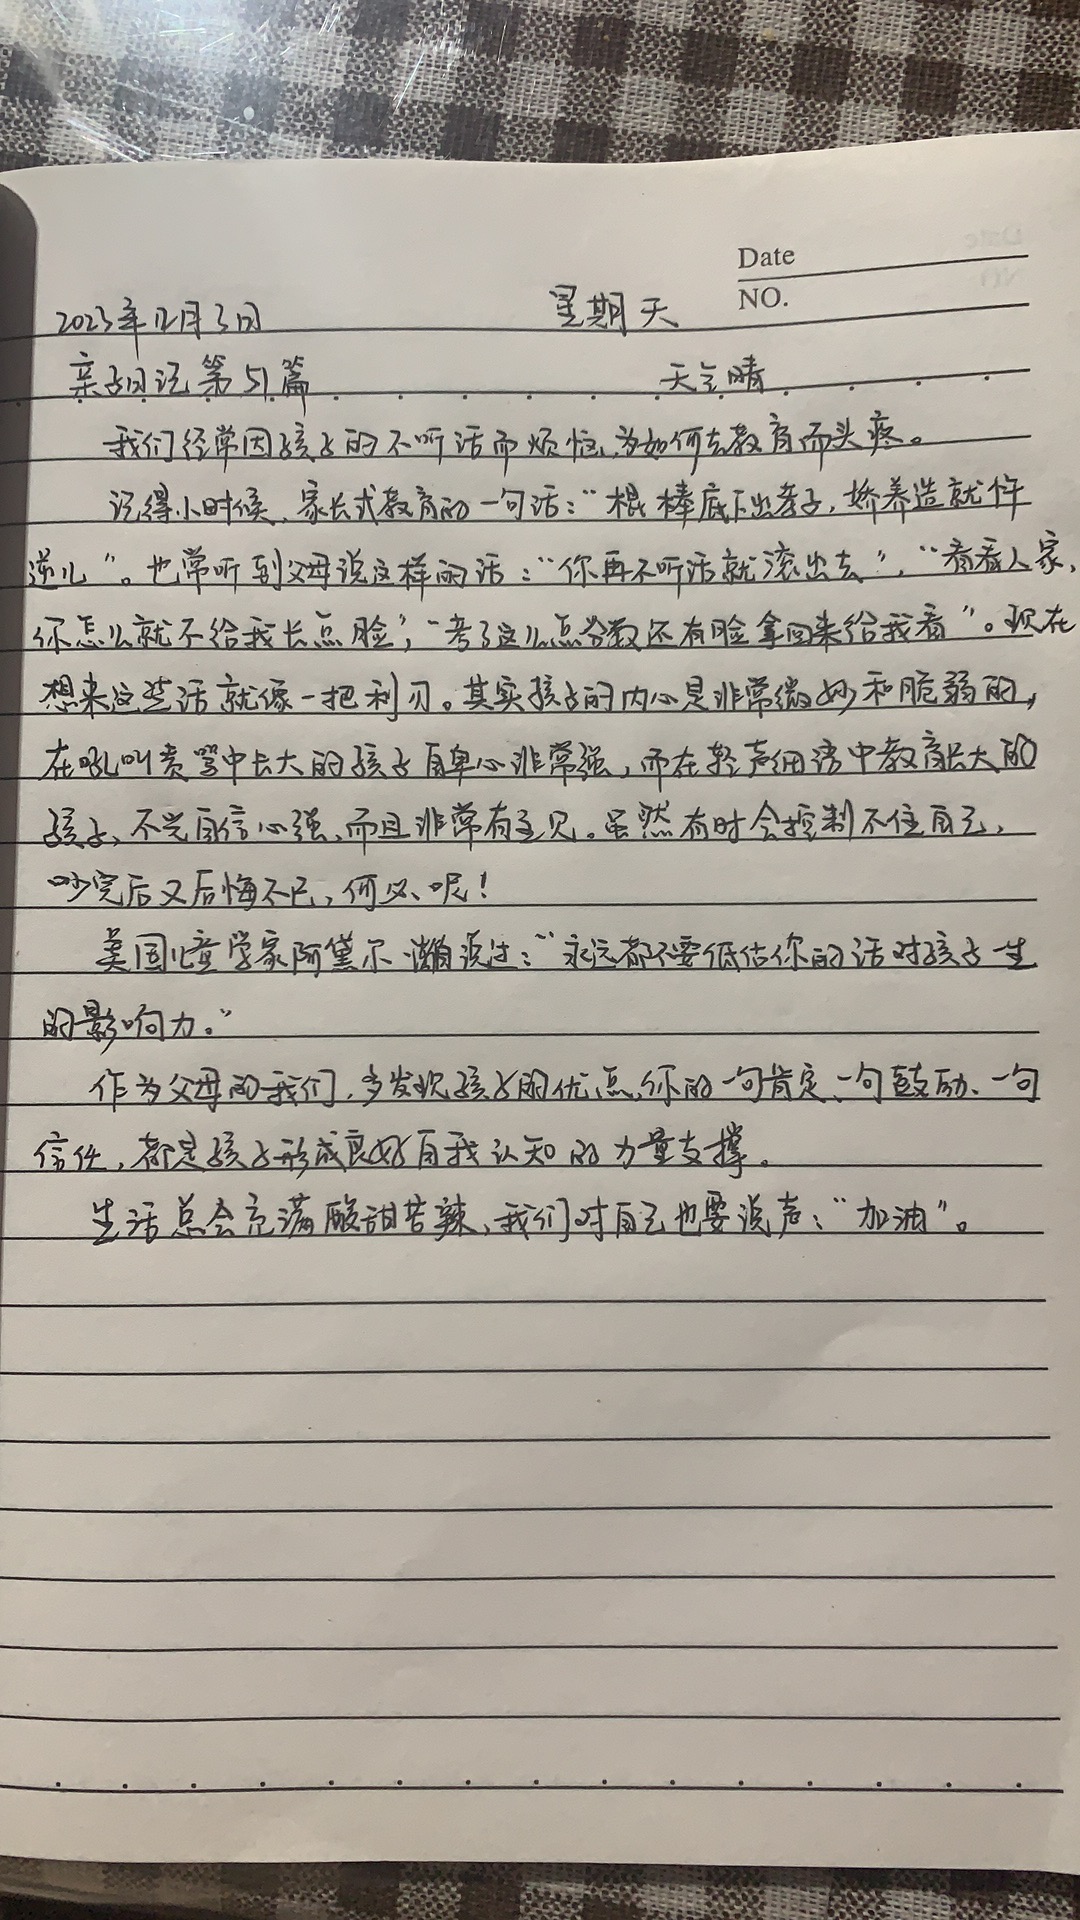 Date
NO.
2023年12月3日 星期天
亲子日记第51篇 天气晴
我们经常因孩子的不听话而烦恼,为如何去教育而头疼。
记得小时候,家长式教育的一句话:“棍棒底下出孝子,娇养造就忤
逆儿”。也常听到父母说这样的话:“你再不听话就滚出去”,“看看人家,
你怎么就不给我长点脸”,“考了这么点分数还有脸拿回来给我看”。现在
想来这些话就像一把利刃。其实孩子的内心是非常微妙和脆弱的,
在吼叫责骂中长大的孩子自卑心非常强,而在轻声细语中教育长大的
孩子,不光自信心强,而且非常有主见。虽然有时会控制不住自己,
吵完后又后悔不已,何必呢!
美国儿童学家阿黛尔·说过:“永远都不要低估你的话对孩子一生
的影响力。”
作为父母的我们,多发现孩子的优点,你的一句肯定、一句鼓励、一句
信任,都是孩子形成良好自我认知的力量支撑。
生活总会充满酸甜苦辣,我们对自己也要说声:“加油”。